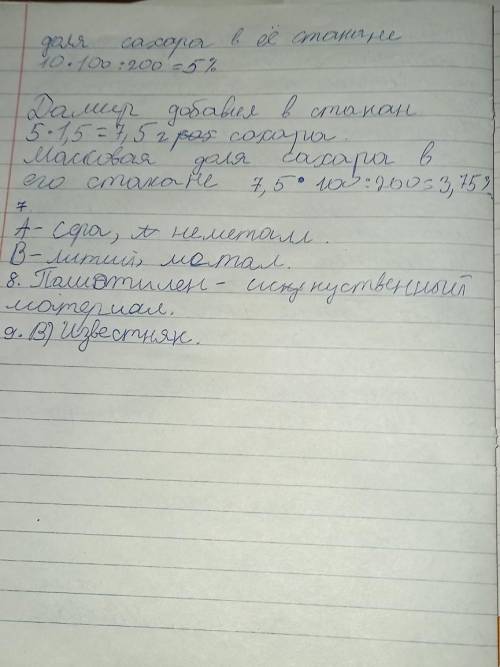 доля сахара в её стакане
10 • 100 : 200 = 5%
Дамир добавил в стакан
5 • 1,5 = 7,5 г сахара.
Массовая доля сахара в
его стакане 7,5 • 100 : 200 = 3,75%
7
А - Сера, неметалл.
В - литий, метал.
8. Полиэтилен - искуственный
материал.
9. В) Известняк.